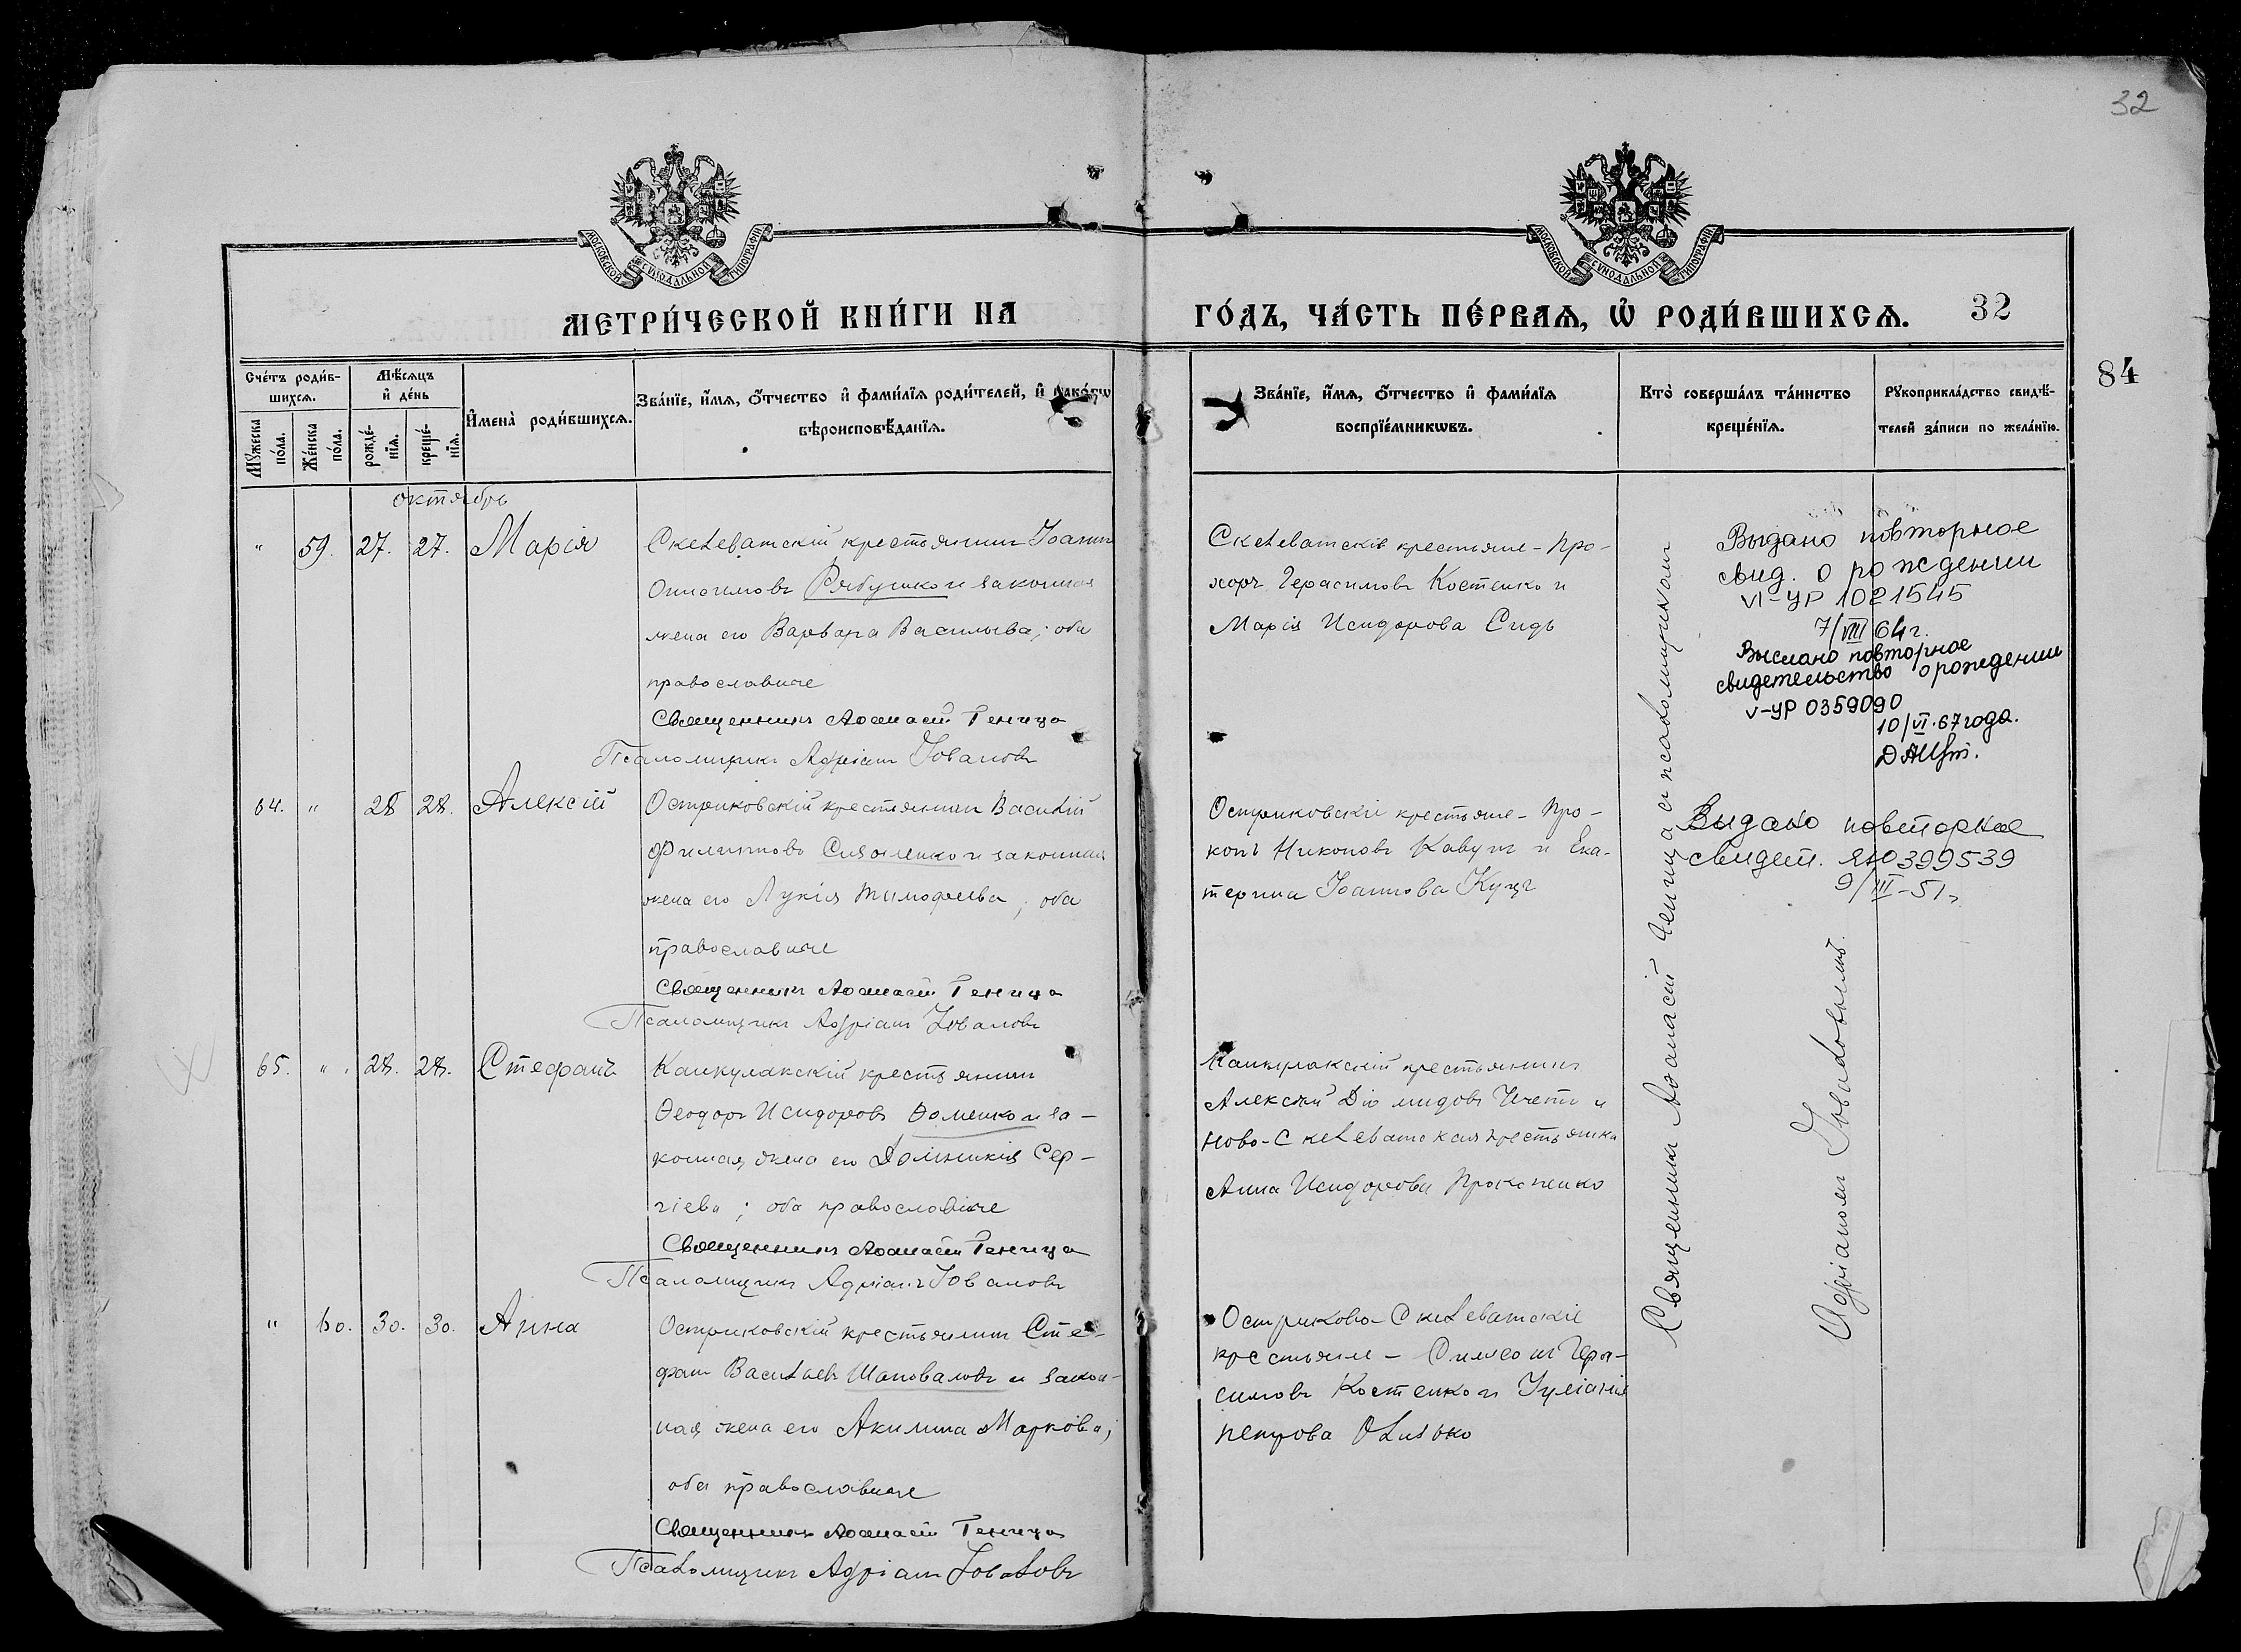 32
МОСКОВСКОЙ СѴНОДАЛЬНОЙ ТИПОГРАФІИ
МОСКОВСКОЙ СѴНОДАЛЬНОЙ ТИПОГРАФІИ
МЕТРИ́ЧЕСКОЙ КНИ́ГИ НА
ГО́ДЪ, ЧА́СТЬ ПЕ́РВАѦ, Ѡ҆ РОДИ́ВШИХСѦ.
32
84
Сче́тъ роди́в-
шихсѧ.
Мꙋ́жеска
по́ла.
Же́нска
по́ла.
Мѣ́сѧцъ
и҆ де́нь
рожде́-
нїѧ.
креще́-
нїѧ.
И҆мена̀ роди́вшихсѧ.
Зва́нїе, и҆́мѧ, ѻ҆́тчество и҆ фами́лїѧ роди́телей, и҆ како́гѡ
вѣроисповѣ́данїѧ.
Зва́нїе, и҆́мѧ, ѻ҆́тчество и҆ фами́лїѧ
воспрїе́мникѡвъ.
Кто̀ соверша́лъ та́инство
креще́нїѧ.
Рꙋкоприкла́дство свидѣ́-
телей за́писи по жела́нїю.
октябрь
" 59. 27. 27. Марія
Скелеватскій крестьянинъ Іоаннъ
Онисимовъ Рябушко и законная
жена его Варвара Васильева; оба
православные
Священникъ Аѳанасій Геница
Псаломщикъ Адріанъ Іовановъ
Скелеватскіе крестьяне - Про-
хоръ Герасимовъ Костенко и
Марія Исидорова Сидь
Выдано повторное
свид. о рождении
VI-УР 1021545
7/VIII 64г.
Выслано повторное
свидетельство о рождении
V-УР 0359090
10/VI.67 года.
64. " 28 28. Алексій
Остриковскій крестьянинъ Василій
Филипповъ и законная
жена его Лукія Тимофеева; оба
православные
Священникъ Аѳанасій Геница
Псаломщикъ Адріанъ Іовановъ
Остриковскіе крестьяне - Про-
копъ Никоновъ Кавунъ и Ека-
терина Іоаннова Куцъ
Выдано повторное
свидет. ЯЮ 399539
9/III-51г
65. " 28. 28. Стефанъ
Канкулакскій крестьянинъ
Ѳеодоръ Исидоровъ Ѳоменко и за-
конная жена его Домникія Сер-
гіева; оба православные
Священникъ Аѳанасій Геница
Псаломщикъ Адріанъ Іовановъ
Канкулакскій крестьянинъ
Алексѣй Діомидовъ и
Ново-Скелеватская крестьянка
Анна Исидорова Прокопенко
" 60. 30. 30. Анна
Остриковскій крестьянинъ Сте-
фанъ Васильевъ Шаповаловъ и закон-
ная жена его Акилина Маркова;
оба православные
Священникъ Аѳанасій Геница
Псаломщикъ Адріанъ Іовановъ
Остриково-Скелеватскіе
крестьяне - Симеонъ Гера-
симовъ Костенко и Іуліанія
Петрова
Священникъ Аѳанасій Геница и псаломщикомъ
Адріаномъ